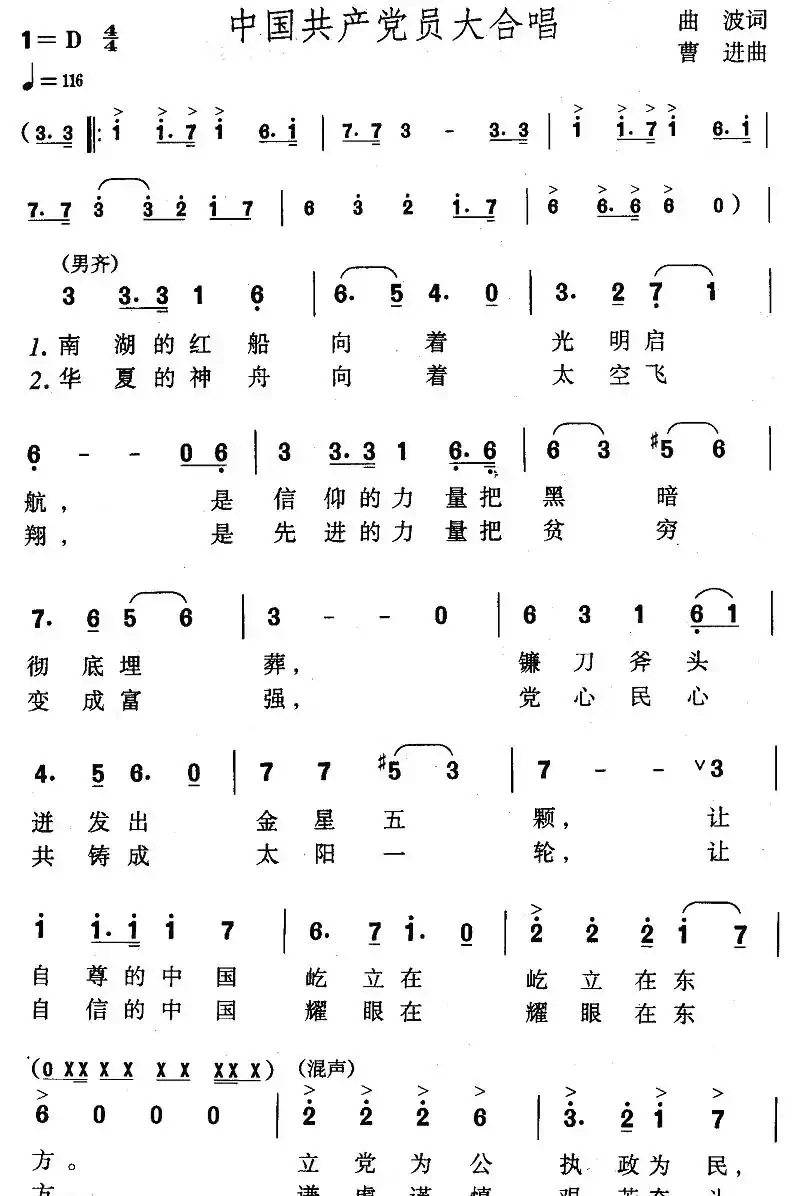 中国共产党员大合唱
1=D 4/4
曲 波词
曹 进曲
♩=116
(3. 3 ‖: i i. 7 i 6. i | 7. 7 3 - 3. 3 | i i. 7 i 6. i |
7. 7 3 3. 2 i 7 | 6 3 2 i. 7 | 6 6. 6 6 0 ) |
(男齐)
3 3. 3 1 6 | 6. 5 4. 0 | 3. 2 7 1 |
1. 南 湖 的 红 船 向 着 光 明 启
2. 华 夏 的 神 舟 向 着 太 空 飞
6 - - 0 6 | 3 3. 3 1 6. 6 | 6 3 #5 6 |
航, 是 信 仰 的 力 量 把 黑 暗
翔, 是 先 进 的 力 量 把 贫 穷
7. 6 5 6 | 3 - - 0 | 6 3 1 6 1 |
彻 底 埋 葬, 镰 刀 斧 头
变 成 富 强, 党 心 民 心
4. 5 6. 0 | 7 7 #5 3 | 7 - - ∨3 |
迸 发 出 金 星 五 颗, 让
共 铸 成 太 阳 一 轮, 让
i i. i i 7 | 6. 7 i. 0 | 2 2 2 i 7 |
自 尊 的 中 国 屹 立 在 屹 立 在 东
自 信 的 中 国 耀 眼 在 耀 眼 在 东
(0 XX X X X X XX X) (混声)
6 0 0 0 | 2 2 2 6 | 3. 2 i 7 |
方。 立 党 为 公 执 政 为 民,
方。